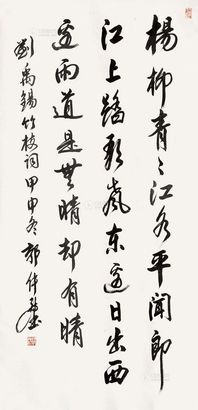 楊柳青々江水平聞郎
江上踏歌聲東邊日出西
邊雨道是無晴却有晴
劉禹錫竹枝詞甲申冬郭偉書